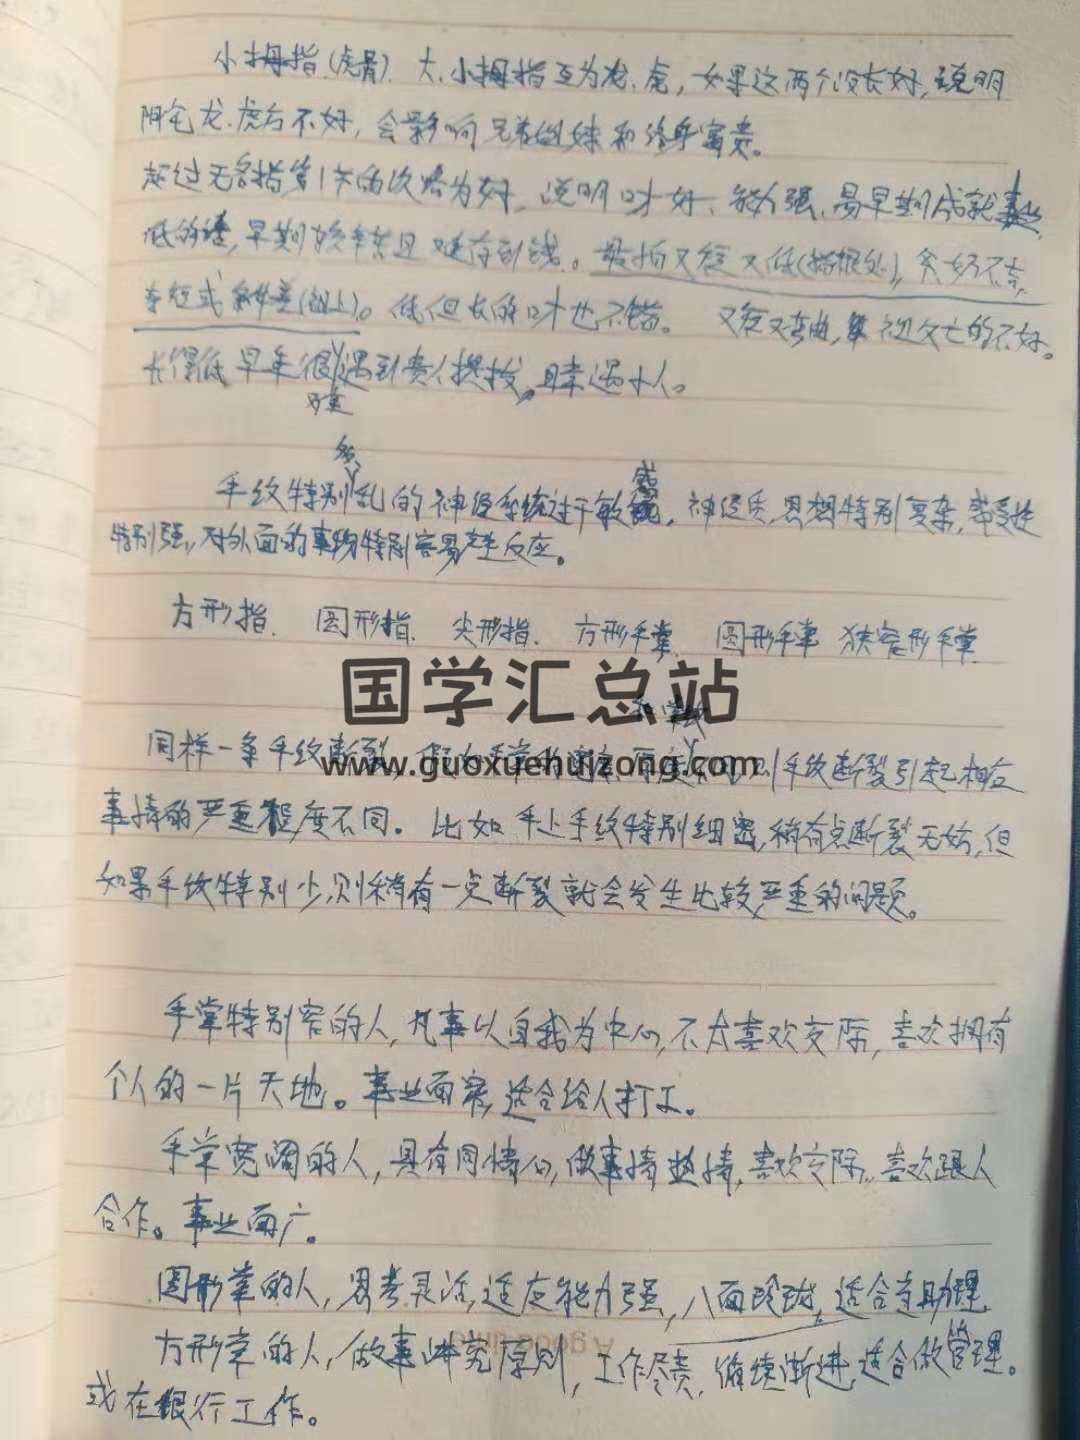 小拇指(虎骨). 大.小拇指互为龙.虎,如果这两个没长好,说明
阴宅龙.虎方不好,会影响兄弟姐妹和终身富贵。
超过无名指第1节的次略为好,说明口才好、能力强、易早期成就事业,
低的缝,早期效率差且难存到钱。最怕又短又低(指根处),
。低但长的口才也不错。 又短又弯曲,无祖父亡的不好。
长得低早年很难遇到贵人提拔,且幸遇小人。
手纹特别多乱的神经系统过于敏感,神经质,思想特别复杂,感受性
特别强,对外面的事物特别容易产生反应。
方形指. 圆形指. 尖形指. 方形手掌. 圆形手掌 狭窄形手掌
国学汇总站
www.guoxuehuizong.com
同样一条手纹断裂, 则手纹断裂引起相应
事情的严重程度不同。比如手上手纹特别细密,稍有点断裂无妨,但
如果手纹特别少,则稍有一点断裂就会发生比较严重的问题。
手掌特别窄的人,凡事以自我为中心,不太喜欢交际,喜欢拥有
个人的一片天地。事业面窄,适合给人打工。
手掌宽阔的人,具有同情心,做事情热情,喜欢交际,喜欢跟人
合作。事业面广。
圆形掌的人,思考灵活,适应能力强,八面玲珑,适合当助理
方形掌的人,做事讲究原则,工作尽责,循续渐进,适合做管理。
或在银行工作。